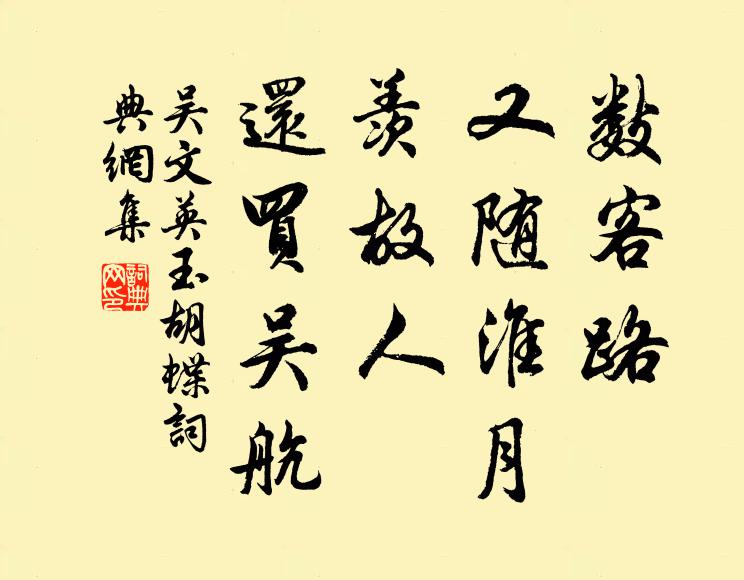 數客路
又随淮月
羨故人
還買吴航
吴文英玉胡蝶詞
典網集
詞典網印